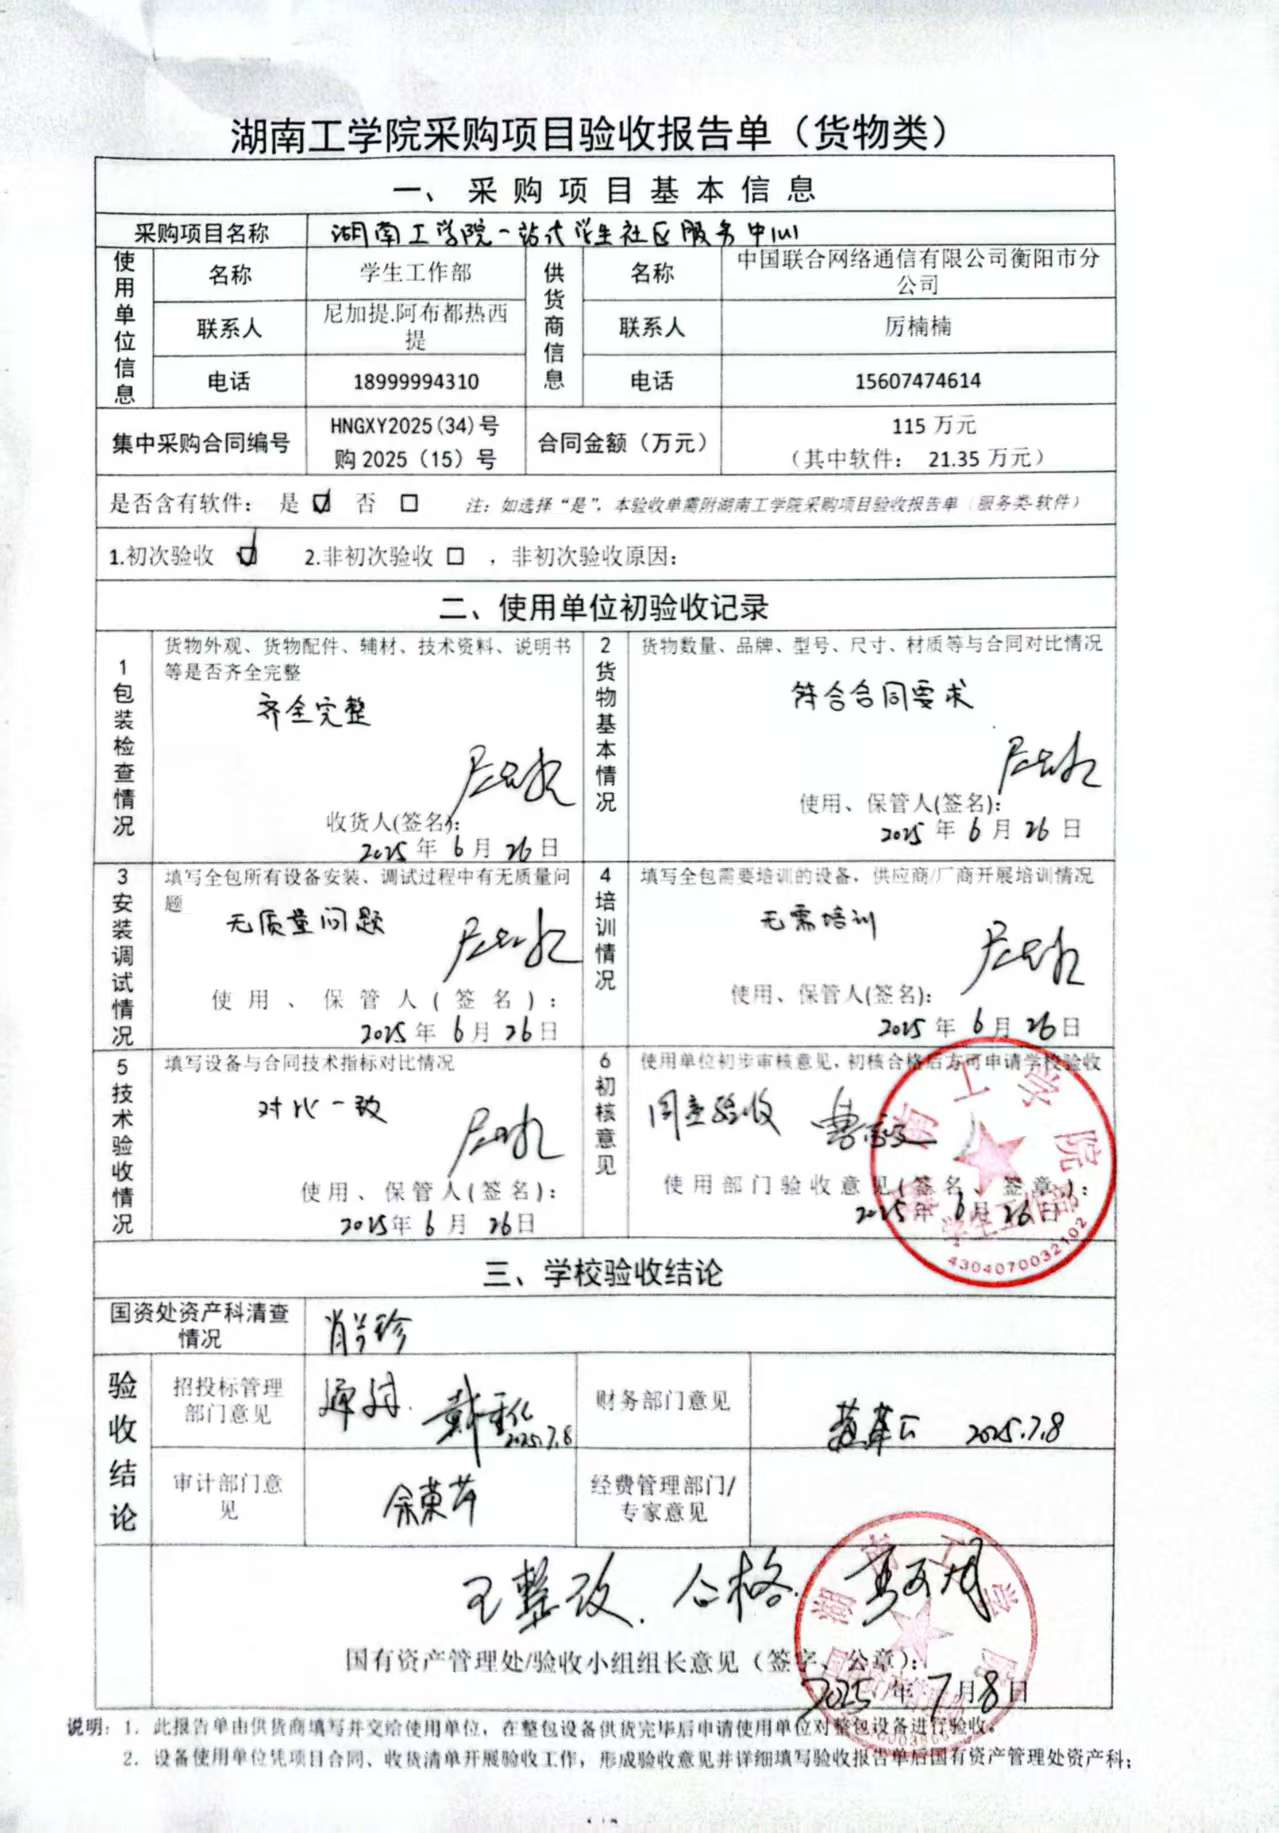 湖南工学院采购项目验收报告单（货物类）
一、采购项目基本信息
采购项目名称 湖南工学院一站式学生社区服务中心
使用单位信息 名称 学生工作部 供货商信息 名称 中国联合网络通信有限公司衡阳市分
公司
联系人 尼加提.阿布都热西
提 联系人 厉楠楠
电话 18999994310 电话 15607474614
集中采购合同编号 HNGXY2025(34)号
购2025（15）号 合同金额（万元） 115 万元
（其中软件： 21.35 万元）
是否含有软件： 是 ☑ 否 □ 注：如选择“是”，本验收单需附湖南工学院采购项目验收报告单（服务类-软件）
1.初次验收 ☑ 2.非初次验收 □ ，非初次验收原因：
二、使用单位初验收记录
1包装检查情况
货物外观、货物配件、辅材、技术资料、说明书
等是否齐全完整
齐全完整
收货人(签名):
2025年 6月 26日
2货物基本情况
货物数量、品牌、型号、尺寸、材质等与合同对比情况
符合合同要求
使用、保管人(签名):
2025年 6月 26日
3安装调试情况
填写全包所有设备安装、调试过程中有无质量问
题
无质量问题
使用、保管人(签名):
2025年 6月 26日
4培训情况
填写全包需要培训的设备，供应商/厂商开展培训情况
无需培训
使用、保管人(签名):
2025年 6月 26日
5技术验收情况
填写设备与合同技术指标对比情况
对比一致
使用、保管人(签名):
2025年 6月 26日
6初核意见
使用单位初步审核意见，初核合格后方可申请学校验收
同意验收
使用部门验收意见(签名、签章):
2025年 6月 26日
湖南工学院
4304070032102
三、学校验收结论
国资处资产科清查
情况
验收结论
招投标管理
部门意见 2025.7.8
财务部门意见 2025.7.8
审计部门意
见
经费管理部门/
专家意见
合格.
湖南工学院
国有资产管理处/验收小组组长意见（签字、公章）：
2025年 7月 8日
说明： 1. 此报告单由供货商填写并交给使用单位，在整包设备供货完毕后申请使用单位对整包设备进行验收。
2. 设备使用单位凭项目合同、收货清单开展验收工作，形成验收意见并详细填写验收报告单后国有资产管理处资产科；